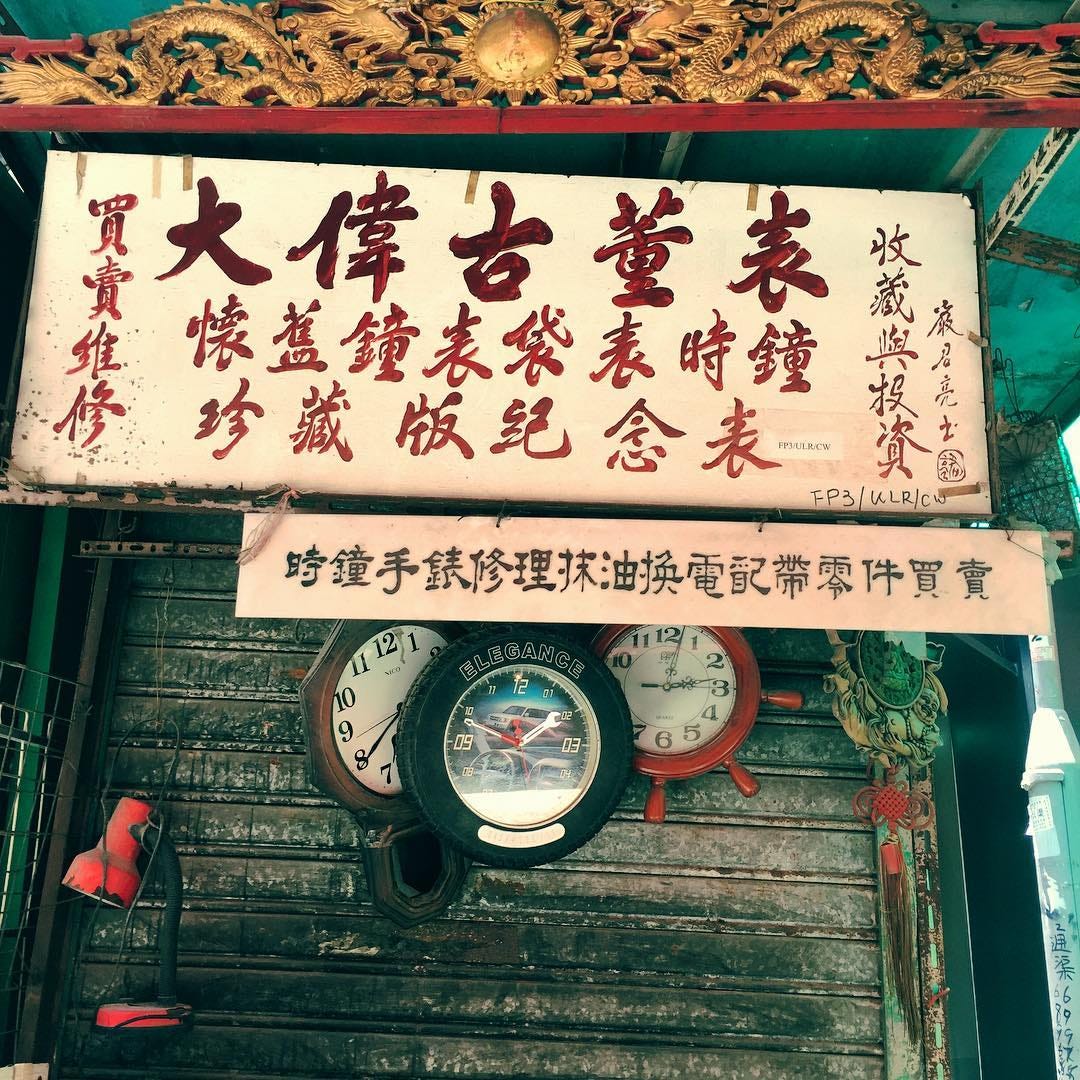 買賣維修
大偉古董表
懷舊鐘表袋表時鐘
珍藏版紀念表
收藏與投資
嚴君亮书
FP3/ULR/CW
FP3/ULR/CW
時鐘手錶修理抹油換電配帶零件買賣
ELEGANCE
11 12 1
10
9
8
7
NICO
12
11 01
10 02
09 03
04
10 11 12
2
3
4
5
6
7
QUARTZ
通渠